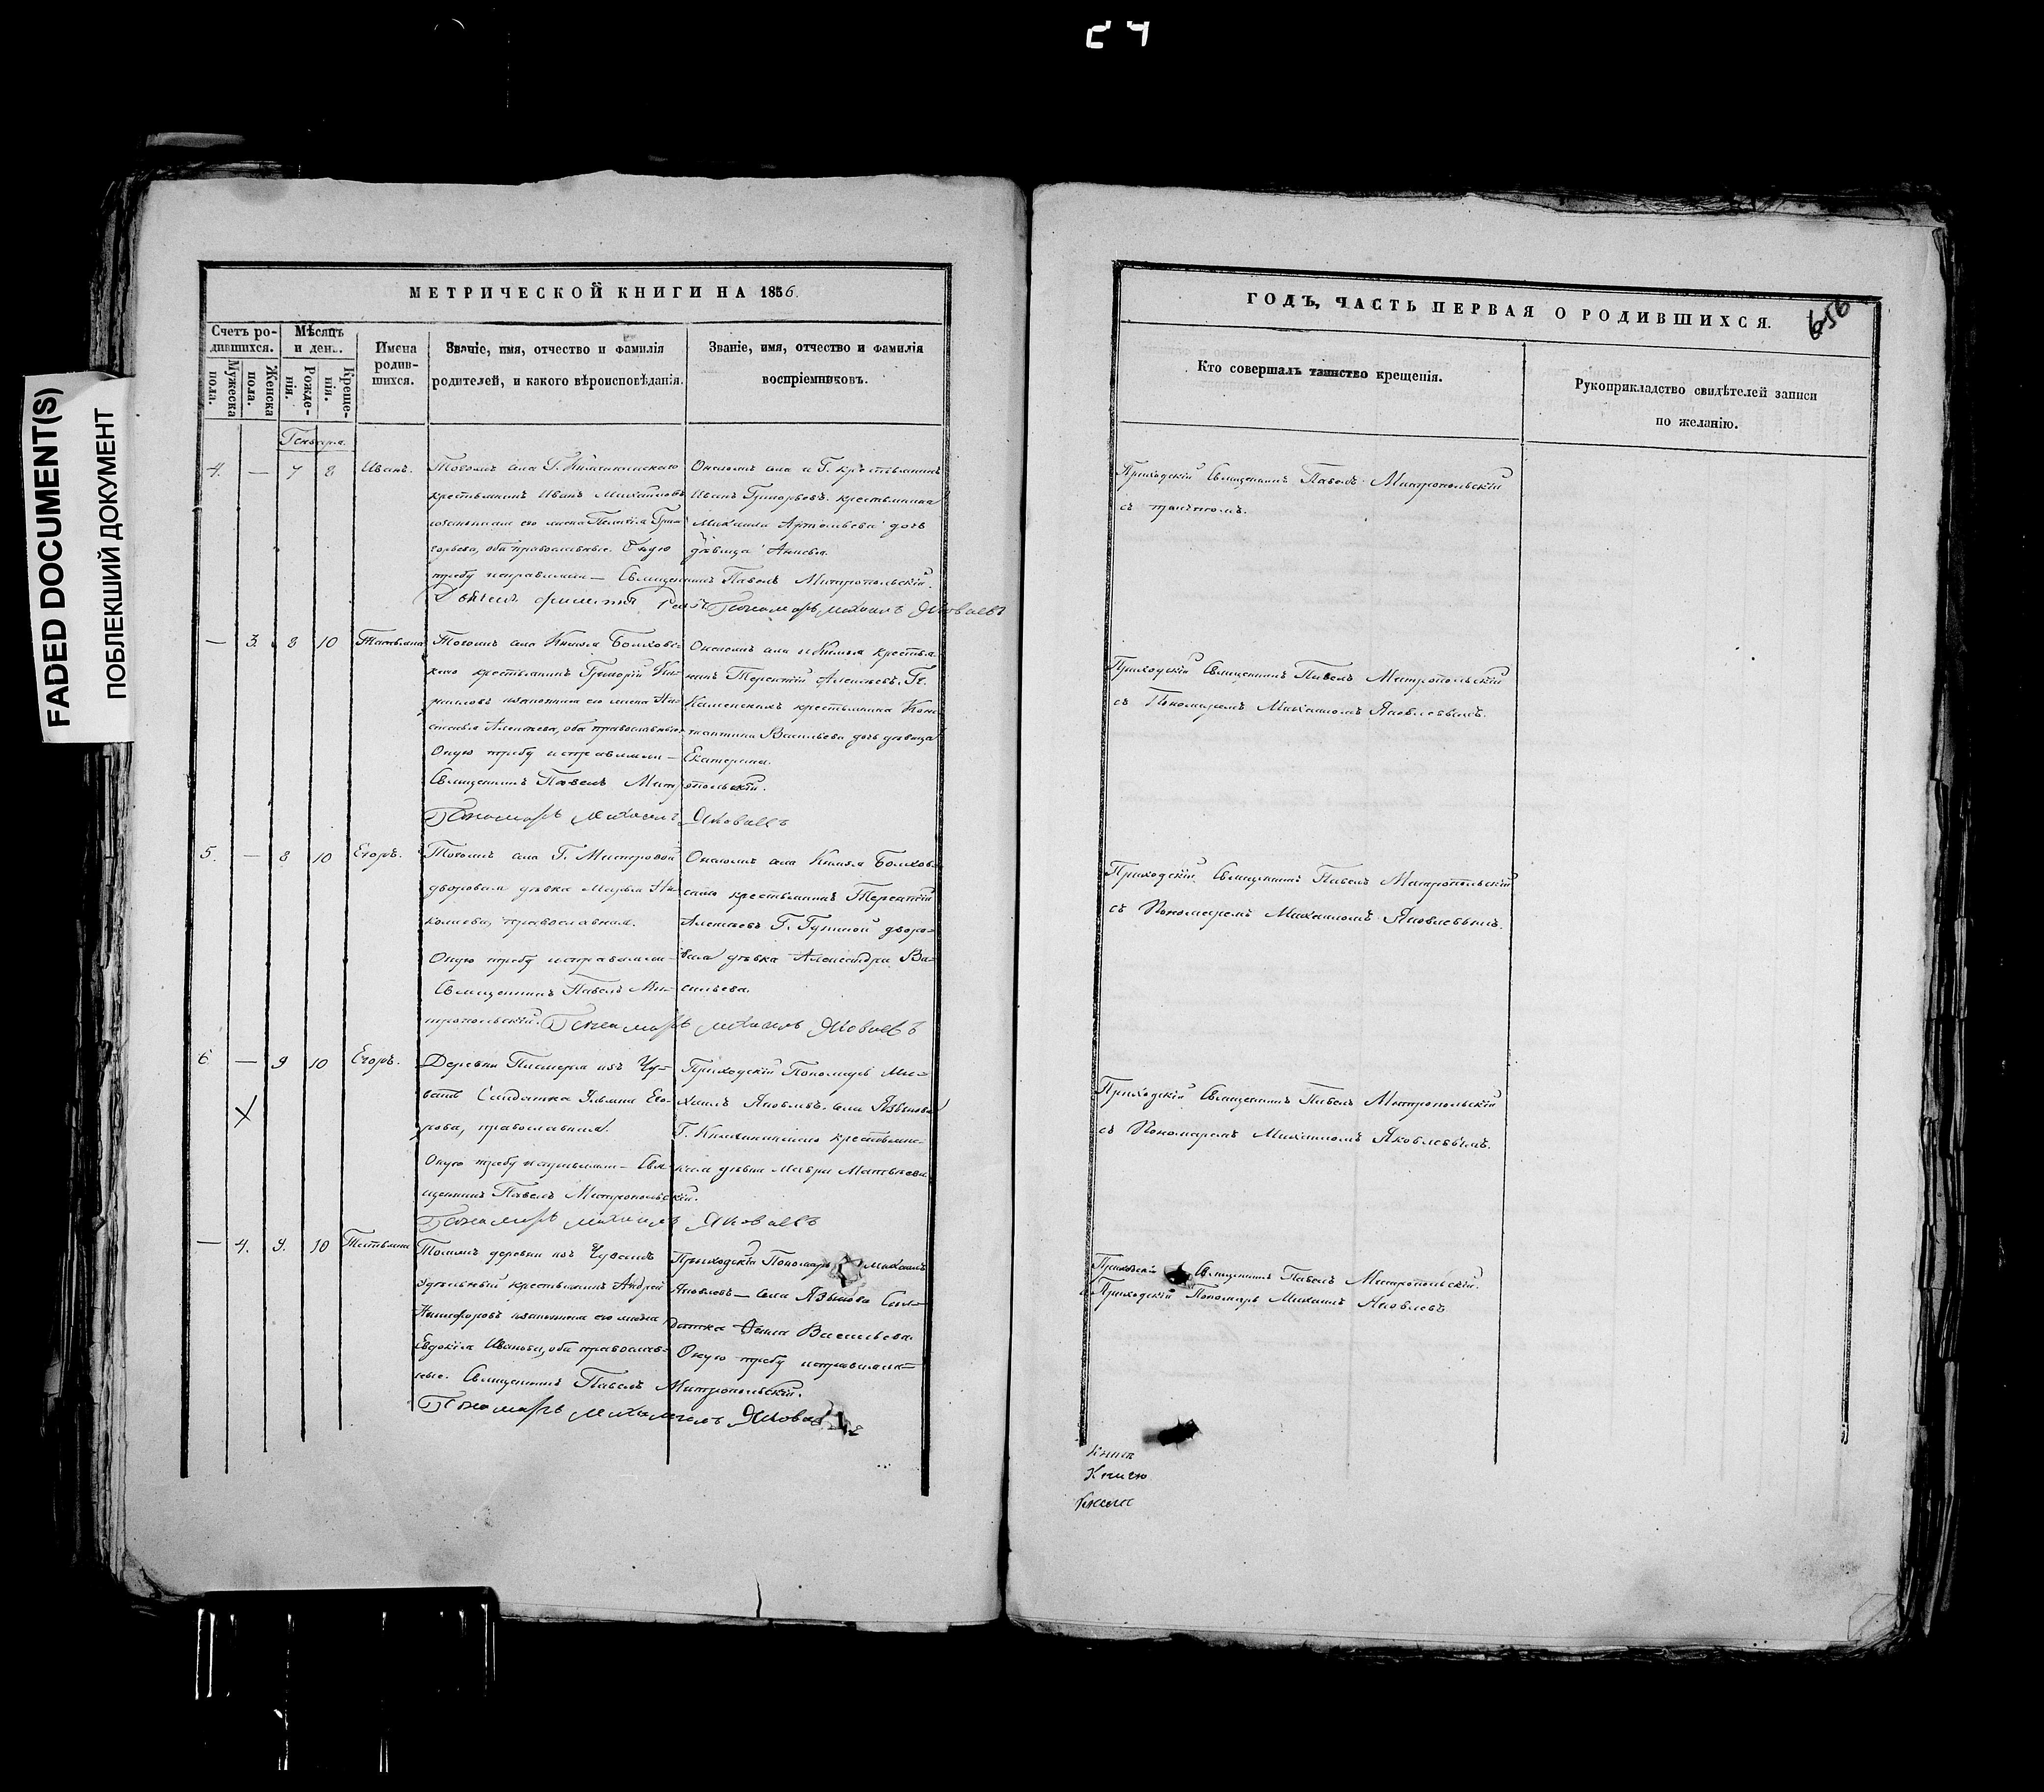 24
FADED DOCUMENT(S)
ПОБЛЕКШИЙ ДОКУМЕНТ
МЕТРИЧЕСКОЙ КНИГИ НА 1856.
Счетъ ро-
дившихся.
Мужеска
пола.
Женска
пола.
Мѣсяцъ
и ден..
Рожде-
нія.
Креще-
нія.
Имена
родив-
шихся.
Званіе, имя, отчество и фамилія
родителей, и какого вѣроисповѣданія.
Званіе, имя, отчество и фамилія
воспріемниковъ.
Генваря.
4. — 7 8 Иванъ.
Тогожъ села Г.
крестьянинъ Иванъ Михайловъ
законная его жена Гри-
горьева, оба православные. Оную
требу исправляли — Священникъ Павелъ Митропольскій.
Пономарь михаилъ Яковлевъ
Онагожъ села и Г. крестьянинъ
Иванъ Григорьевъ. крестьянина
Михаила дочь
дѣвица Анисья.
— 3. 8 10 Татьяна
Тогожъ села Князя Болховс-
каго крестьянинъ Григорій Ки-
рилловъ законная его жена На-
стасья Алексѣева, оба православные
Оную требу исправляли —
Священникъ Павелъ Митропольскій.
Пономарь михаилъ Яковлевъ
Онагожъ села и Князя крестья-
нинъ Терентій Алексѣевъ. Гг.
Каменскихъ крестьянина Конс
тантина Васильева дочь дѣвица
Екатерина.
5. — 8 10 Егоръ.
Тогожъ села Г.
дворовая дѣвка Марья Ни-
колаева, православная.
Оную требу исправляли —
Священникъ Павелъ Ми-
тропольскій. Пономарь михаилъ Яковлевъ
Онагожъ села Князя Болхов-
скаго крестьянинъ Терентій
Алексѣевъ Г. дворо-
вая дѣвка Александра Ва-
сильева.
6 — 9 10 Егоръ.
Деревни изъ Чу-
вашъ Солдатка Ульяна Его-
рова, православная.
Оную требу исправляли — Свя-
щенникъ Павелъ Митропольскій.
Пономарь михаилъ Яковлевъ
Приходскій Пономарь Ми-
хаилъ Яковлевъ. села Языкова
Г. крестьянс-
кая дѣвка Мавра Матвѣева
— 4. 9. 10 Татьяна
Тоижъ деревни изъ Чувашъ
Удѣльный крестьянинъ Андрей
Никифоровъ законная его жена
Евдокія Иванова, оба православ-
ные. Священникъ Павелъ Митропольскій.
Пономарь михаилъ Яковлевъ
Приходскій Пономарь михаилъ
Яковлевъ — села Языкова Сол-
датка Васильева.
Оную требу исправляли —
ГОДЪ, ЧАСТЬ ПЕРВАЯ О РОДИВШИХСЯ.
656
Кто совершалъ таинство крещенія.
Рукоприкладство свидѣтелей записи
по желанію.
Приходскій Священникъ Павелъ Митропольскій
съ причтомъ.
Приходскій Священникъ Павелъ Митропольскій
съ Пономаремъ Михаиломъ Яковлевымъ.
Приходскій Священникъ Павелъ Митропольскій
съ Пономаремъ Михаиломъ Яковлевымъ.
Приходскій Священникъ Павелъ Митропольскій
съ Пономаремъ Михаиломъ Яковлевымъ.
Приходскій Священникъ Павелъ Митропольскій.
Приходскій Пономарь Михаилъ Яковлевъ